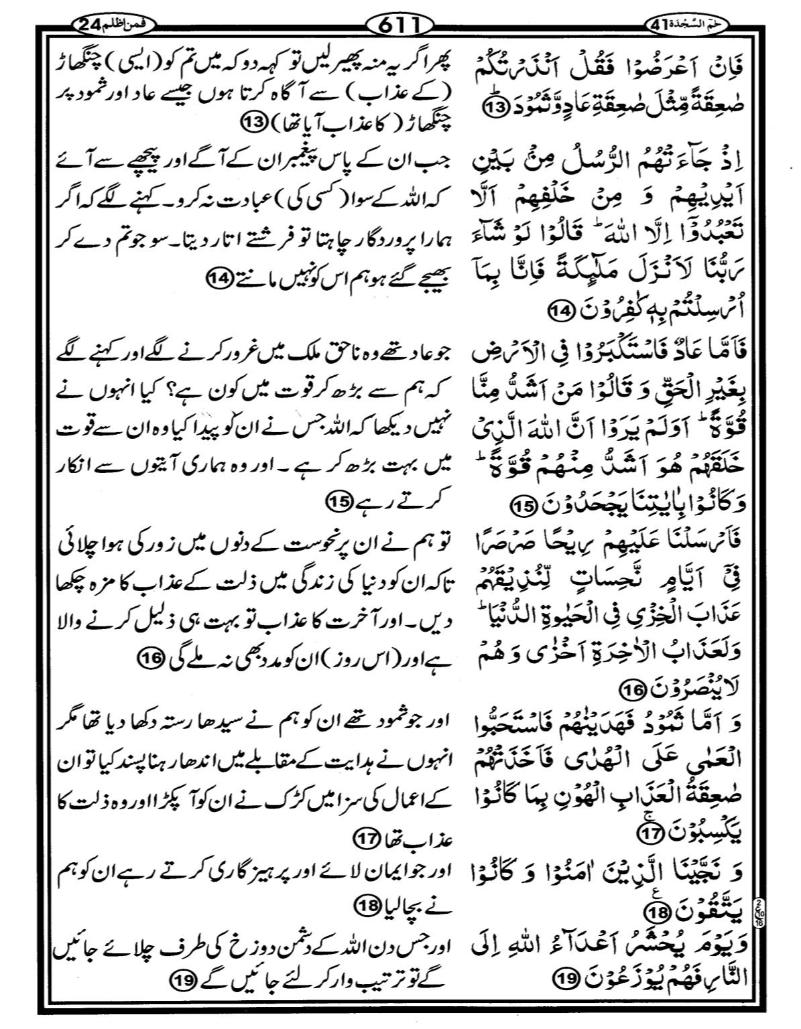 حٰمٓ السَّجْدَة 41
611
فمن اظلم 24
فَاِنْ اَعْرَضُوْا فَقُلْ اَنْذَرْتُكُمْ
صٰعِقَةً مِّثْلَ صٰعِقَةِ عَادٍ وَّثَمُوْدَ ؕ 13
اِذْ جَآءَتْهُمُ الرُّسُلُ مِنْۢ بَيْنِ
اَيْدِيْهِمْ وَ مِنْ خَلْفِهِمْ اَلَّا
تَعْبُدُوْۤا اِلَّا اللّٰهَ ؕ قَالُوْا لَوْ شَآءَ
رَبُّنَا لَاَنْزَلَ مَلٰٓئِكَةً فَاِنَّا بِمَاۤ
اُرْسِلْتُمْ بِهٖ كٰفِرُوْنَ 14
فَاَمَّا عَادٌ فَاسْتَكْبَرُوْا فِي الْاَرْضِ
بِغَيْرِ الْحَقِّ وَ قَالُوْا مَنْ اَشَدُّ مِنَّا
قُوَّةً ؕ اَوَلَمْ يَرَوْا اَنَّ اللّٰهَ الَّذِيْ
خَلَقَهُمْ هُوَ اَشَدُّ مِنْهُمْ قُوَّةً ؕ
وَ كَانُوْا بِاٰيٰتِنَا يَجْحَدُوْنَ 15
فَاَرْسَلْنَا عَلَيْهِمْ رِيْحًا صَرْصَرًا
فِيْۤ اَيَّامٍ نَّحِسَاتٍ لِّنُذِيْقَهُمْ
عَذَابَ الْخِزْيِ فِي الْحَيٰوةِ الدُّنْيَا ؕ
وَلَعَذَابُ الْاٰخِرَةِ اَخْزٰى وَ هُمْ
لَا يُنْصَرُوْنَ 16
وَ اَمَّا ثَمُوْدُ فَهَدَيْنٰهُمْ فَاسْتَحَبُّوا
الْعَمٰى عَلَى الْهُدٰى فَاَخَذَتْهُمْ
صٰعِقَةُ الْعَذَابِ الْهُوْنِ بِمَا كَانُوْا
يَكْسِبُوْنَ ۚ 17
وَ نَجَّيْنَا الَّذِيْنَ اٰمَنُوْا وَ كَانُوْا
يَتَّقُوْنَ ع 18
وَيَوْمَ يُحْشَرُ اَعْدَآءُ اللّٰهِ اِلَى
النَّارِ فَهُمْ يُوْزَعُوْنَ 19
پھر اگر یہ منہ پھیر لیں تو کہہ دو کہ میں تم کو (ایسی) چنگھاڑ
(کے عذاب) سے آگاہ کرتا ہوں جیسے عاد اور ثمود پر
چنگھاڑ (کا عذاب آیا تھا) 13
جب ان کے پاس پیغمبر ان کے آگے اور پیچھے سے آئے
کہ اللہ کے سوا (کسی کی) عبادت نہ کرو۔ کہنے لگے کہ اگر
ہمارا پروردگار چاہتا تو فرشتے اتار دیتا۔ سو جو تم دے کر
بھیجے گئے ہو ہم اس کو نہیں مانتے 14
جو عاد تھے وہ ناحق ملک میں غرور کرنے لگے اور کہنے لگے
کہ ہم سے بڑھ کر قوت میں کون ہے؟ کیا انہوں نے
نہیں دیکھا کہ اللہ جس نے ان کو پیدا کیا وہ ان سے قوت
میں بہت بڑھ کر ہے ۔ اور وہ ہماری آیتوں سے انکار
کرتے رہے 15
تو ہم نے ان پر نحوست کے دنوں میں زور کی ہوا چلائی
تاکہ ان کو دنیا کی زندگی میں ذلت کے عذاب کا مزہ چکھا
دیں۔ اور آخرت کا عذاب تو بہت ہی ذلیل کرنے والا
ہے اور (اس روز) ان کو مدد بھی نہ ملے گی 16
اور جو ثمود تھے ان کو ہم نے سیدھا رستہ دکھا دیا تھا مگر
انہوں نے ہدایت کے مقابلے میں اندھا رہنا پسند کیا تو ان
کے اعمال کی سزا میں کڑک نے ان کو آ پکڑا اور وہ ذلت کا
عذاب تھا 17
اور جو ایمان لائے اور پرہیزگاری کرتے رہے ان کو ہم
نے بچا لیا 18
اور جس دن اللہ کے دشمن دوزخ کی طرف چلائے جائیں
گے تو ترتیب وار کر لئے جائیں گے 19